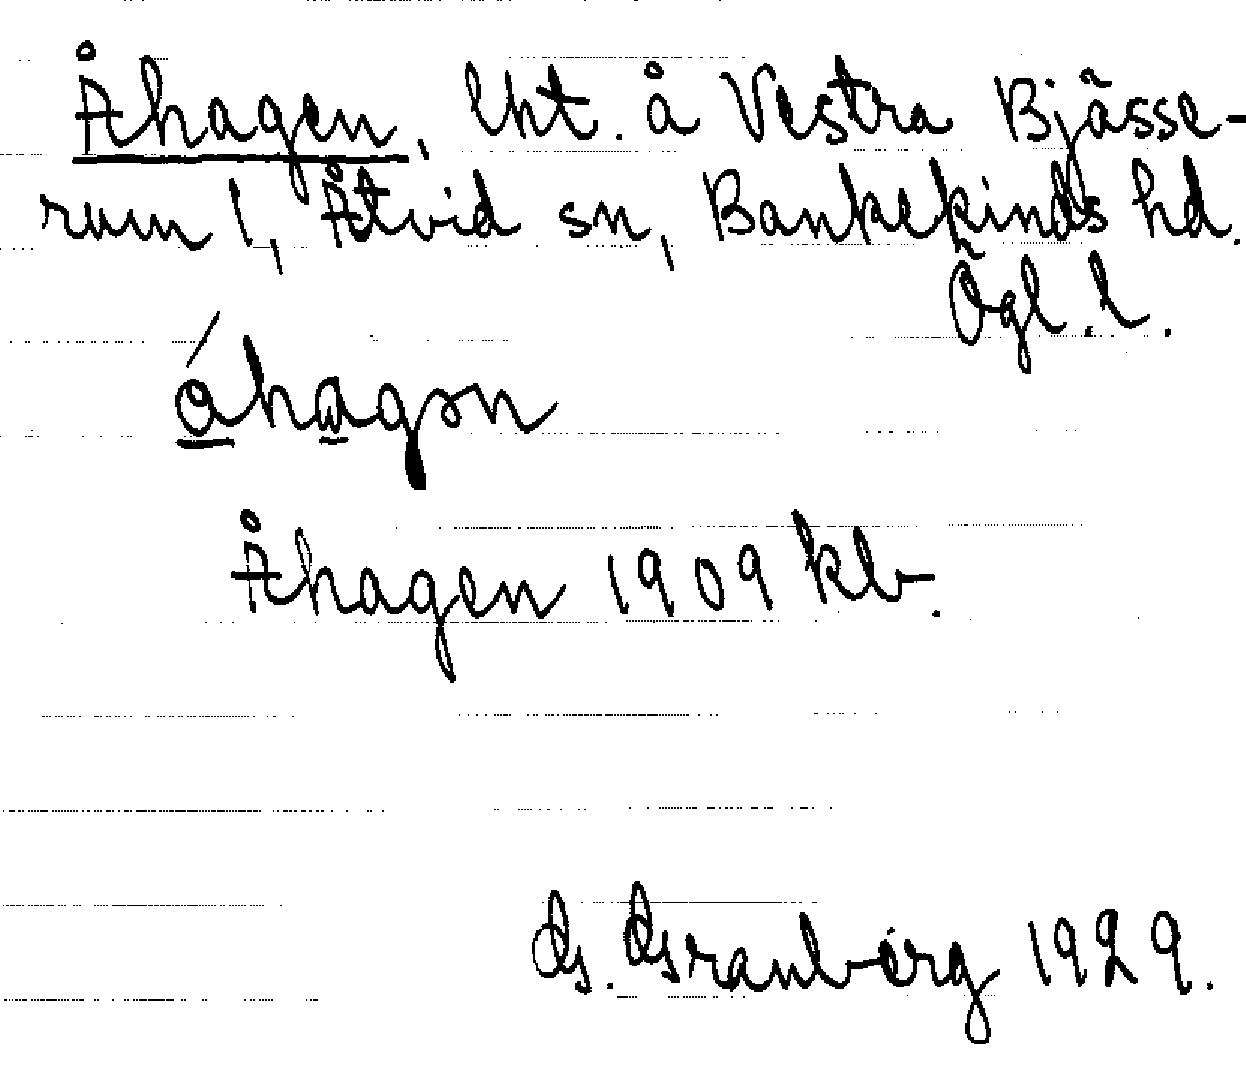 Åhagen, lht. å Vestra Bjässe-
rum 1, Åtvid sn, Bankekinds hd.
Ögl. l.
óhagən
Åhagen 1909 kb.
G. Granberg 1929.